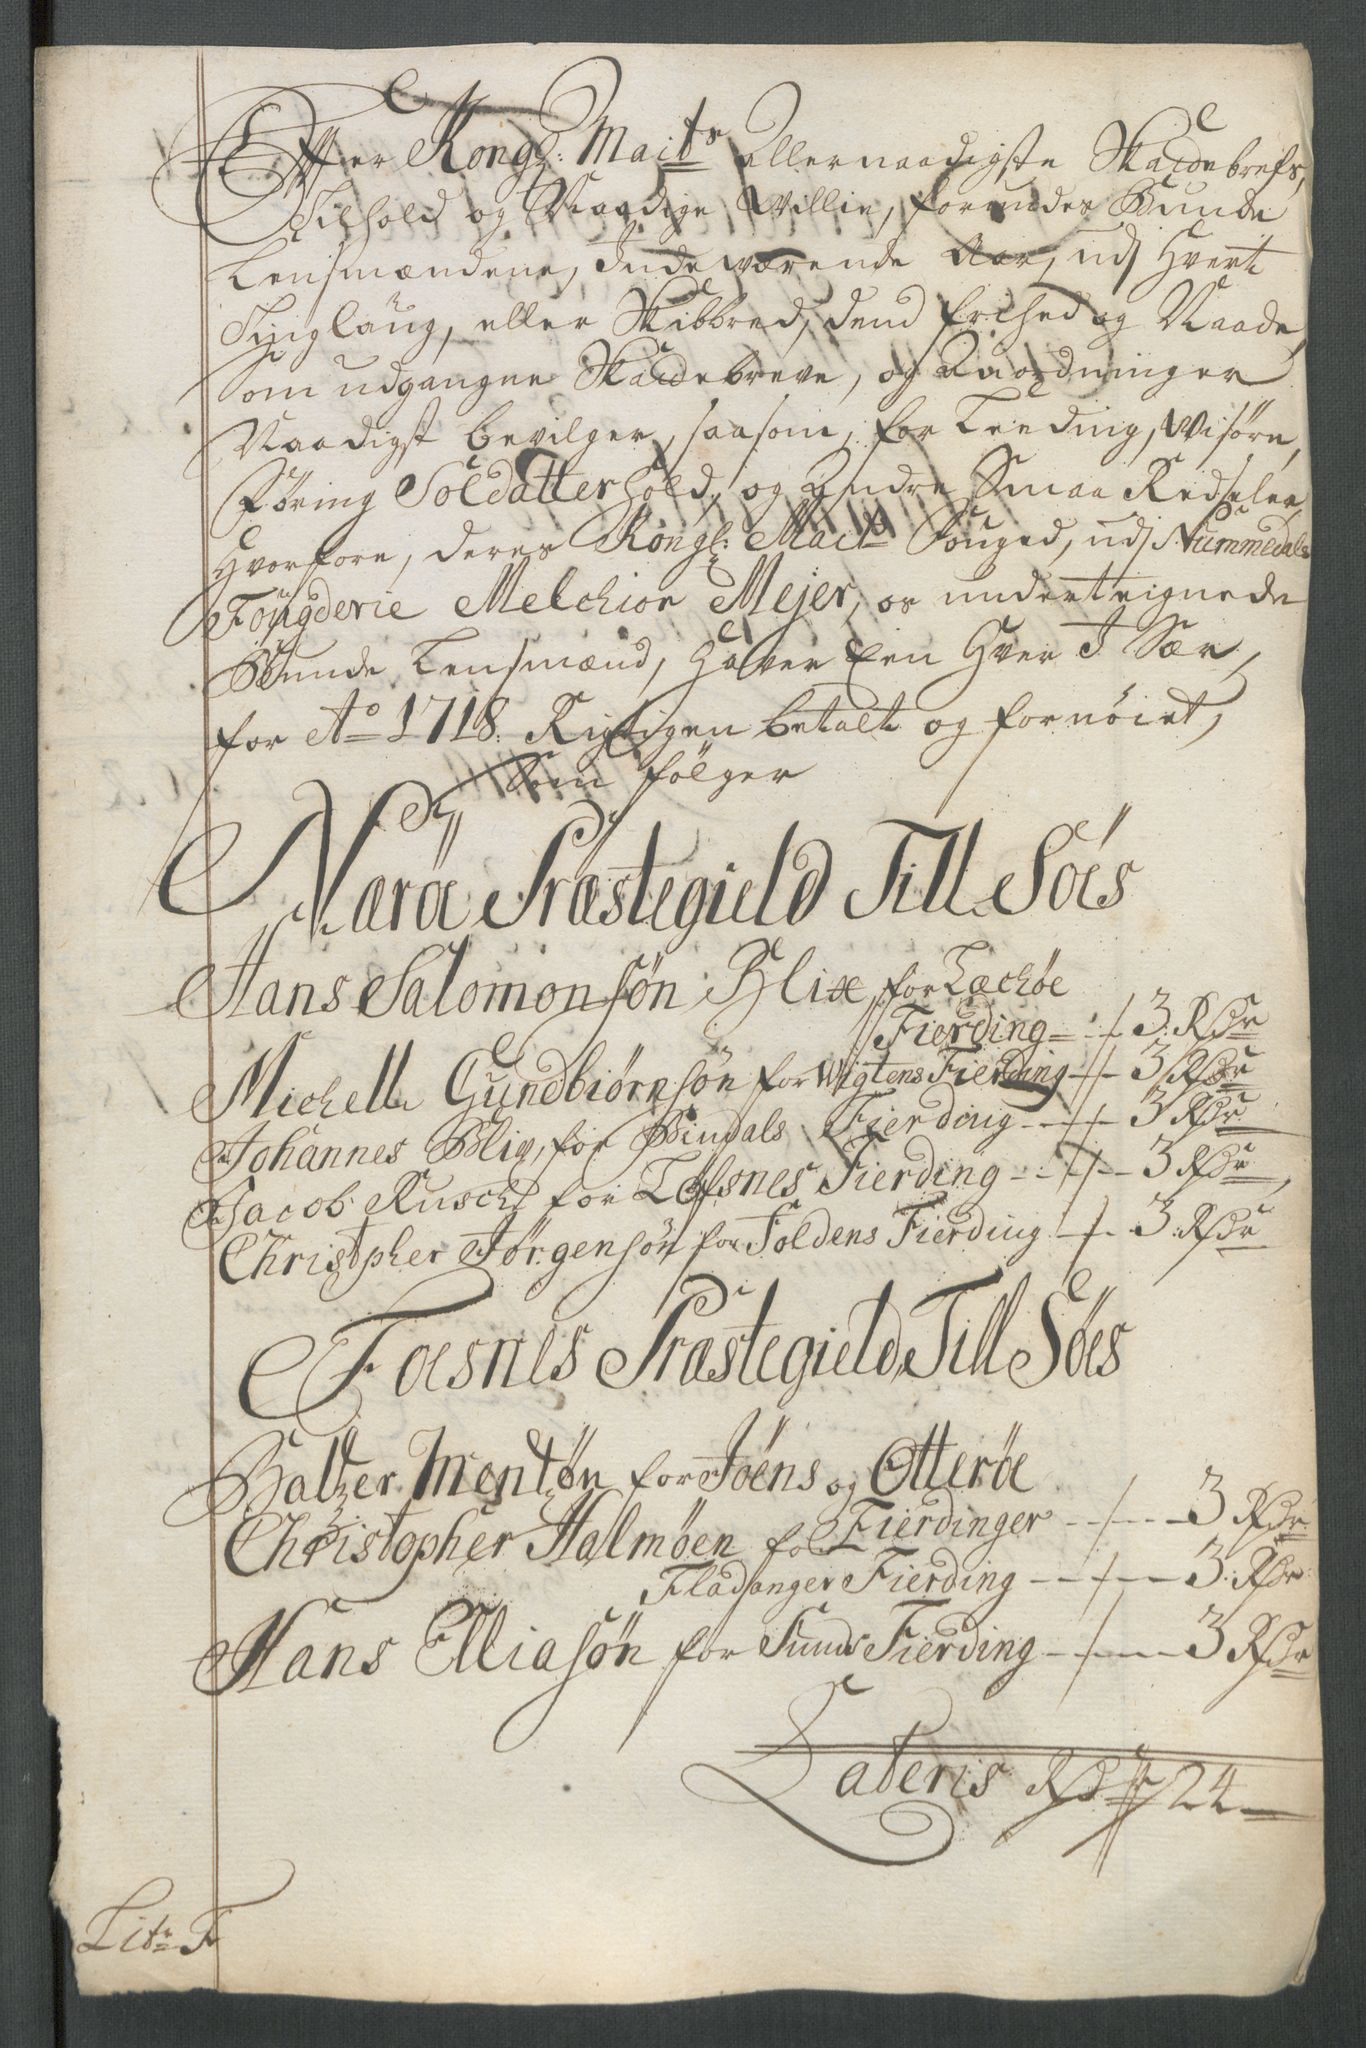 Effter Kongl: Maits Allernaadigste Skattebrefs,
Tilhold og Naadige Willie, forundes Bunde
Lensmændene, Indeværende Aar, udj Hvert
Tinglaug, eller Skibbred, dend frihed og Naade,
Som udgangne Skattebreve, og Anordninger
Naadigst bevilger, saasom, for Leeding, Wisøre,
Føring Soldatterhold, og Andre Smaa Redseler,
Hvorfore, deres Kongl: Maits Fouged, udj Nummedals
Fougderie Melchior Mejer, os underteignede
Bunde Lensmænd, Haver Een Hver I Sær,
for Ao 1718. Rigtigen betalt og fornøiet,
Som følger
Nærøe Præstegield Till Søes
Hans Salomonsøn Blix for Læchøe
Fierding - - 3. Rdr
Michell Gundbiørnsøn for Wigtens Fierding - 3 Rdr
Johannes Blix, for Bindals Fierding - - 3 Rdr
Jacob Rusch for Lofsnes Fierding - - - 3 Rdr
Christopher Jørgensøn for Foldens Fierding - 3. Rdr
Foesnes Præstegield, Till Søes
Baltzer Mentzøn for Jøens og Otterøe
Fierdinger - - - 3 Rdr
Christopher Halmøen for
Fladanger Fierding - - - 3. Rdr
Hans Elliasøn for Sunds Fierding - - 3 Rdr
Lateris Rdr 24
Litr F